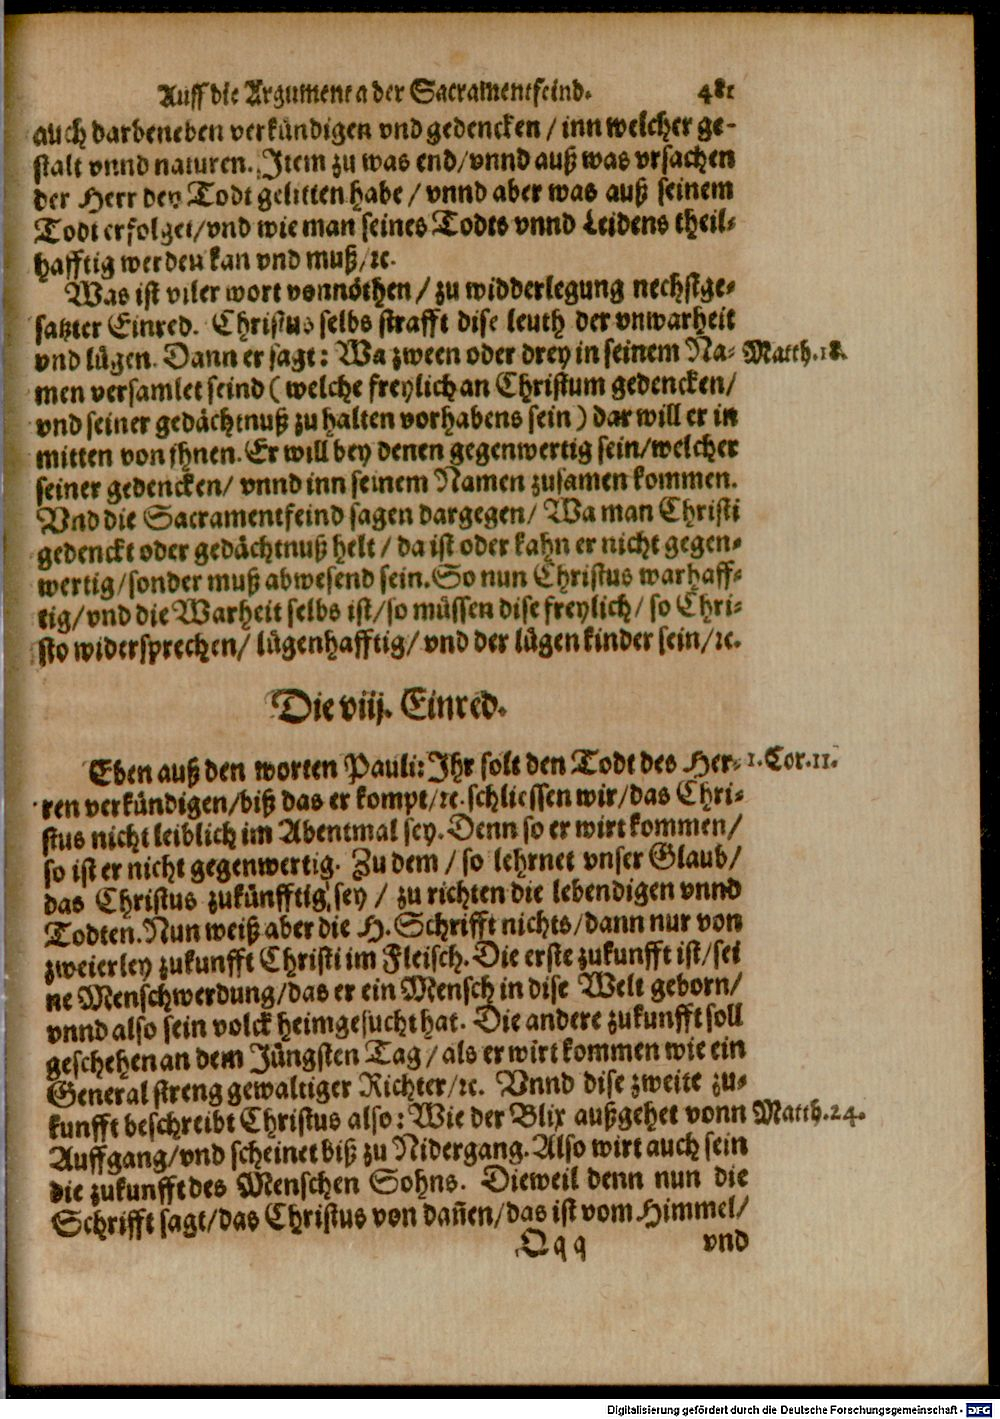 Auff die Argumenta der Sacramentfeind. 481
auch darbeneben verkündigen vnd gedencken / inn welcher ge-
stalt vnnd naturen. Item zu was end/vnnd auß was vrsachen
der Herr den Todt gelitten habe / vnnd aber was auß seinem
Todt erfolget/vnd wie man seines Todts vnnd Leidens theil-
hafftig werden kan vnd muß/ꝛc.
Was ist viler wort vonnöthen / zu widderlegung nechstge-
satzter Einred. Christus selbs strafft dise leuth der vnwarheit
vnd lügen. Dann er sagt: Wa zween oder drey in seinem Na- Matth.18.
men versamlet seind (welche freylich an Christum gedencken/
vnd seiner gedächtnuß zu halten vorhabens sein) dar will er in
mitten von ihnen. Er will bey denen gegenwertig sein/welcher
seiner gedencken/ vnnd inn seinem Namen zusamen kommen.
Vnd die Sacramentfeind sagen dargegen/ Wa man Christi
gedenckt oder gedächtnuß helt / da ist oder kahn er nicht gegen-
wertig/sonder muß abwesend sein. So nun Christus warhaff-
tig/vnd die Warheit selbs ist/so müssen dise freylich/ so Chri-
sto widersprechen/ lügenhafftig/ vnd der lügen kinder sein/ꝛc.
Die viij. Einred.
Eben auß den worten Pauli: Ihr solt den Todt des Her- 1. Cor. 11.
ren verkündigen/biß das er kompt/ꝛc. schliessen wir/das Chri-
stus nicht leiblich im Abentmal sey. Denn so er wirt kommen/
so ist er nicht gegenwertig. Zu dem / so lehrnet vnser Glaub/
das Christus zukünfftig sey / zu richten die lebendigen vnnd
Todten. Nun weiß aber die H. Schrifft nichts/dann nur von
zweierley zukunfft Christi im Fleisch. Die erste zukunfft ist/sei
ne Menschwerdung/das er ein Mensch in dise Welt geborn/
vnnd also sein volck heimgesucht hat. Die andere zukunfft soll
geschehen an dem Jüngsten Tag/als er wirt kommen wie ein
General streng gewaltiger Richter/ꝛc. Vnnd dise zweite zu-
kunfft beschreibt Christus also: Wie der Blix außgehet vonn Matth.24.
Auffgang/vnd scheinet biß zu Nidergang. Also wirt auch sein
die zukunfft des Menschen Sohns. Dieweil denn nun die
Schrifft sagt/das Christus von dañen/das ist vom Himmel/
Qqq vnd
Digitalisierung gefördert durch die Deutsche Forschungsgemeinschaft - DFG